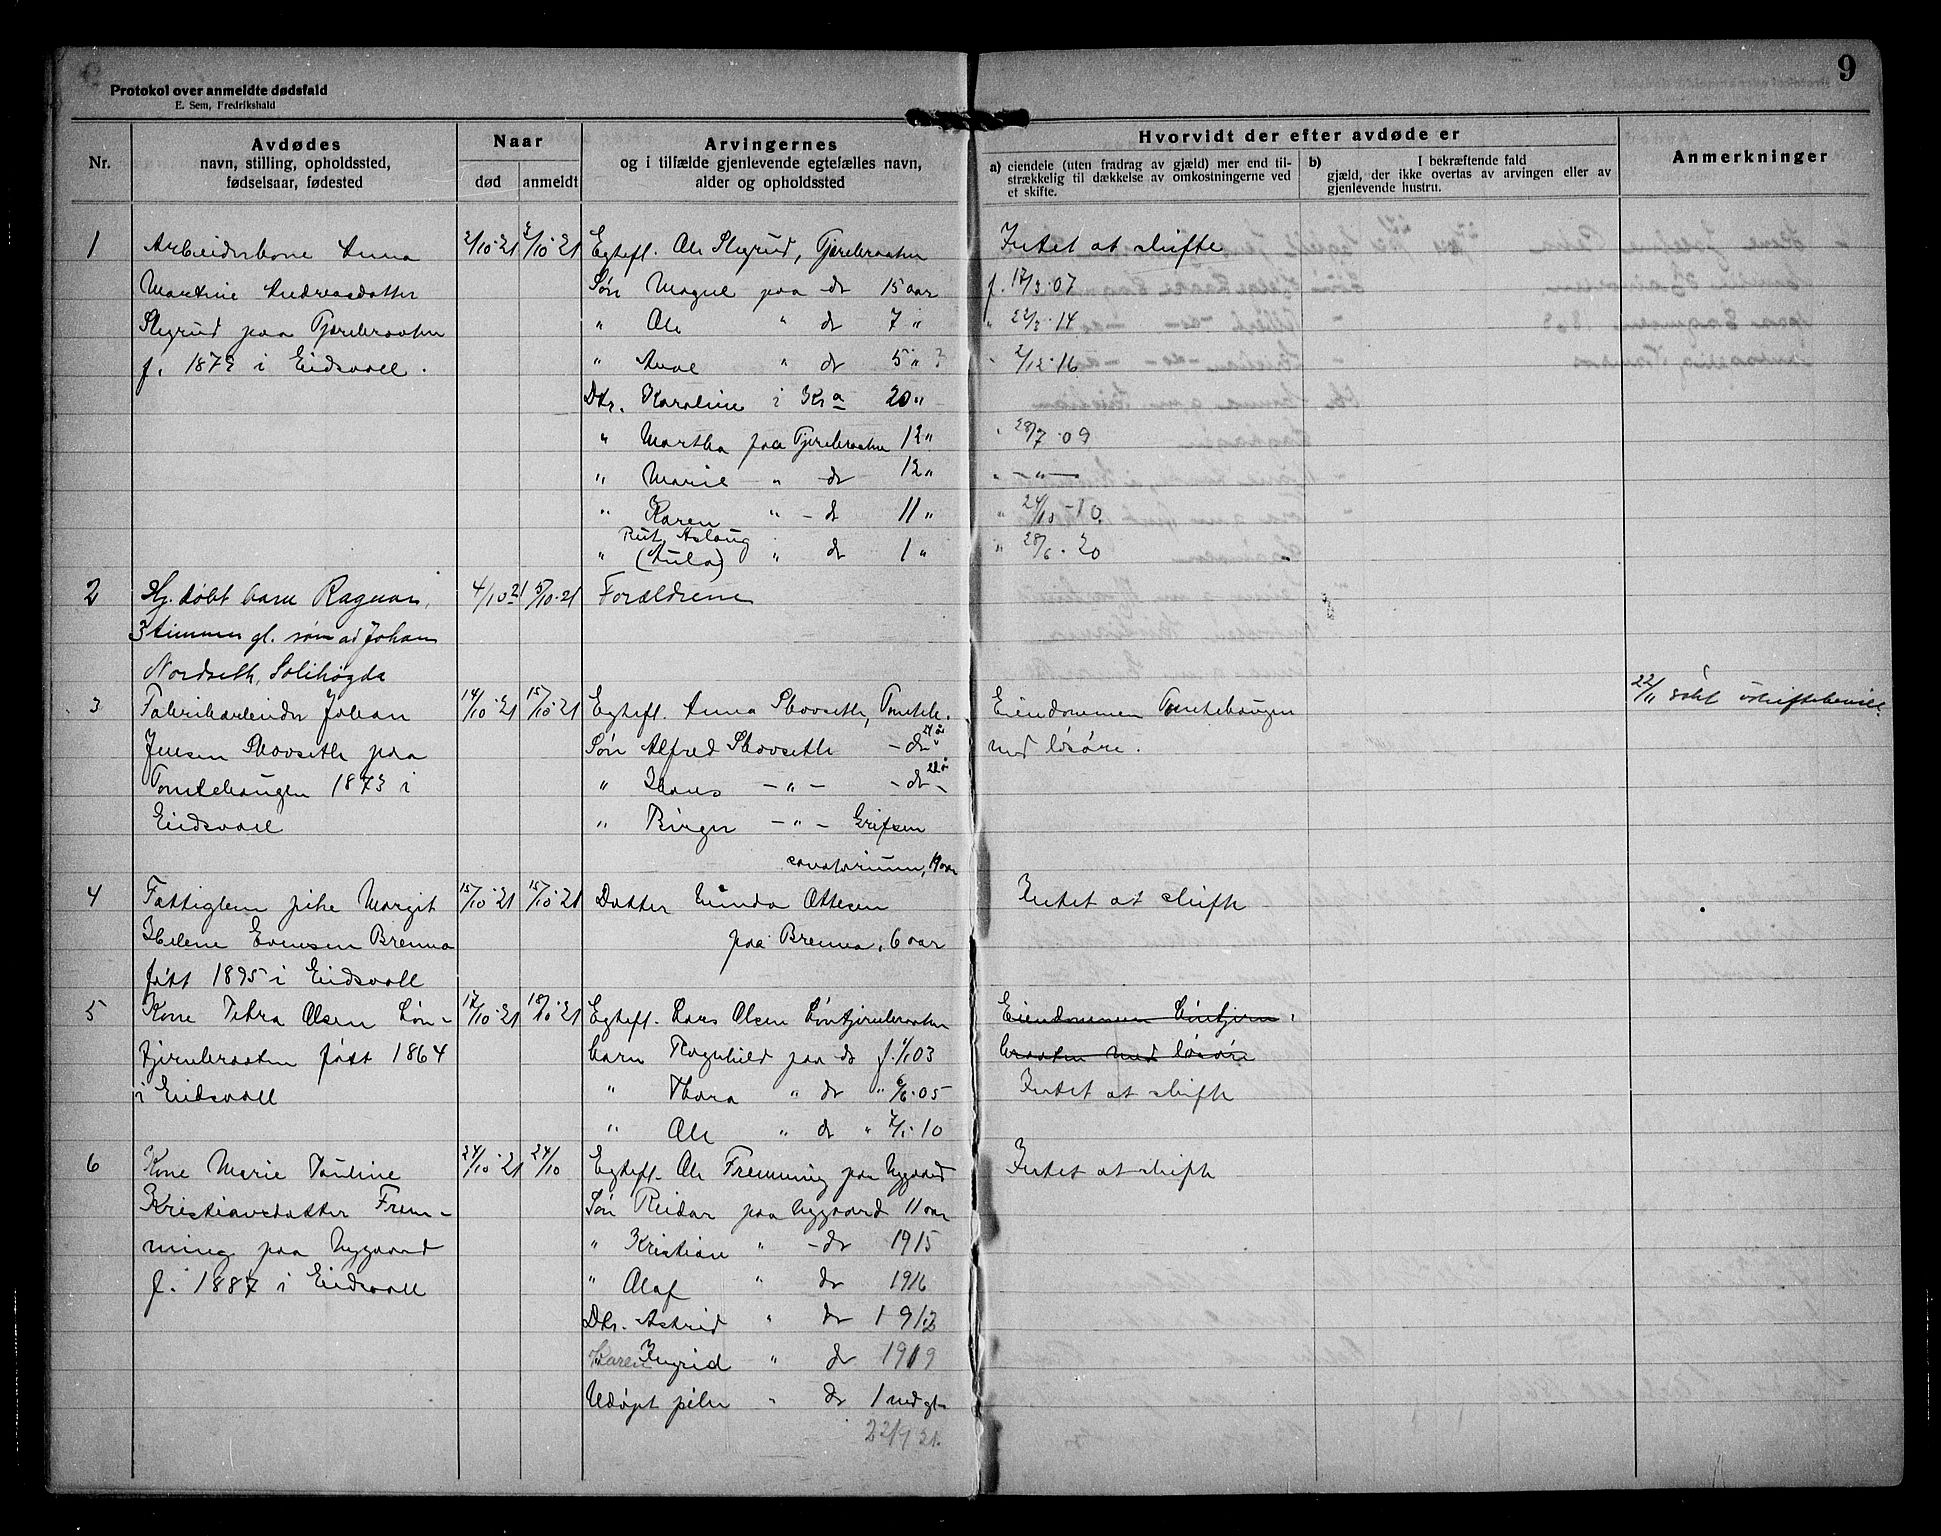 9
Protokol over anmeldte dødsfald
E. Sem, Fredrikshald
Nr.
Avdødes
navn, stilling, opholdssted,
fødselsaar, fødested
Naar
død
anmeldt
Arvingernes
og i tilfælde gjenlevende egtefælles navn,
alder og opholdssted
Hvorvidt der efter avdøde er
a) eiendele (uten fradrag av gjæld) mer end til-
strækkelig til dækkelse av omkostningerne ved
et skifte.
b) I bekræftende fald
gjæld, der ikke overtas av arvingen eller av
gjenlevende hustru.
Anmerkninger
1 Arbeiderkone Anna 2/10-21 3/10-21 Egtefl. Ole Slegrud, Tjærebraaten Intet at skifte
Martine Andreasdatter Søn Magne paa do 15 aar f. 17/3-07
Slegrud paa Tjærebraaten " Ole " do 7 " " 22/3-14
f. 1879 i Eidsvoll. " Arne " do 5 " " 2/12-16
Dtr. Karoline i Kra 20 "
" Martha paa Tjærebraaten 12 " " 28/7-09
" Marie " do 12 " " - " -
" Karen " - do 11 " " 24/10-10
Rut Aslaug
" (Aula) " do 1 " " 28/6-20
2 Hj. døbt barn Ragnar, 4/10 21 5/10-21 Forældrene
3 timmer gl. søn av Johan
Nordseth, Solihøgda
3 Fabrikarbeider Johan 14/10-21 15/10-21 Egtefl. Anna Skovseth, Tomteh. Eiendommen Tomtehaugen 22/11 søkt uskiftebevill.
Jensen Skovseth paa Søn Alfred Skovseth - do med løsøre.
Tomtehaugen 1873 i " Hans - " - - do - 22 år
Eidsvoll " Birger - " - Grefsen
sanatorium, 19 aar
4 Fattiglem pike Margit 15/10-21 15/10-21 Datter Gunda Ottesen Intet at skifte
Helene Evensen Brenna paa Brenna, 6 aar
født 1895 i Eidsvoll
5 Kone Petra Olsen Løn- 17/10-21 18/10-21 Egtefl. Lars Olsen Løntjernbraaten Eiendommen Løntjern-
tjernbraaten født 1864 barn Ragnhild paa do f. 1/1 03 braaten med løsøre
i Eidsvoll " Thora " do " 6/6-05 Intet at skifte
" Ole " do " 7/1-10
6 Kone Marie Pauline 24/10-21 24/10 Egtefl. Ole Fremming paa Nygaard Intet at skifte
Kristiansdatter Frem- Søn Reidar paa Nygaard 11 aar
ming paa Nygaard " Kristian " - do 1915
f. 1887 i Eidsvoll " Olaf " do 1916
Dtr. Astrid " do 1912
Karen Ingrid " do 1919
Udøpt pike " do 1 md gl.